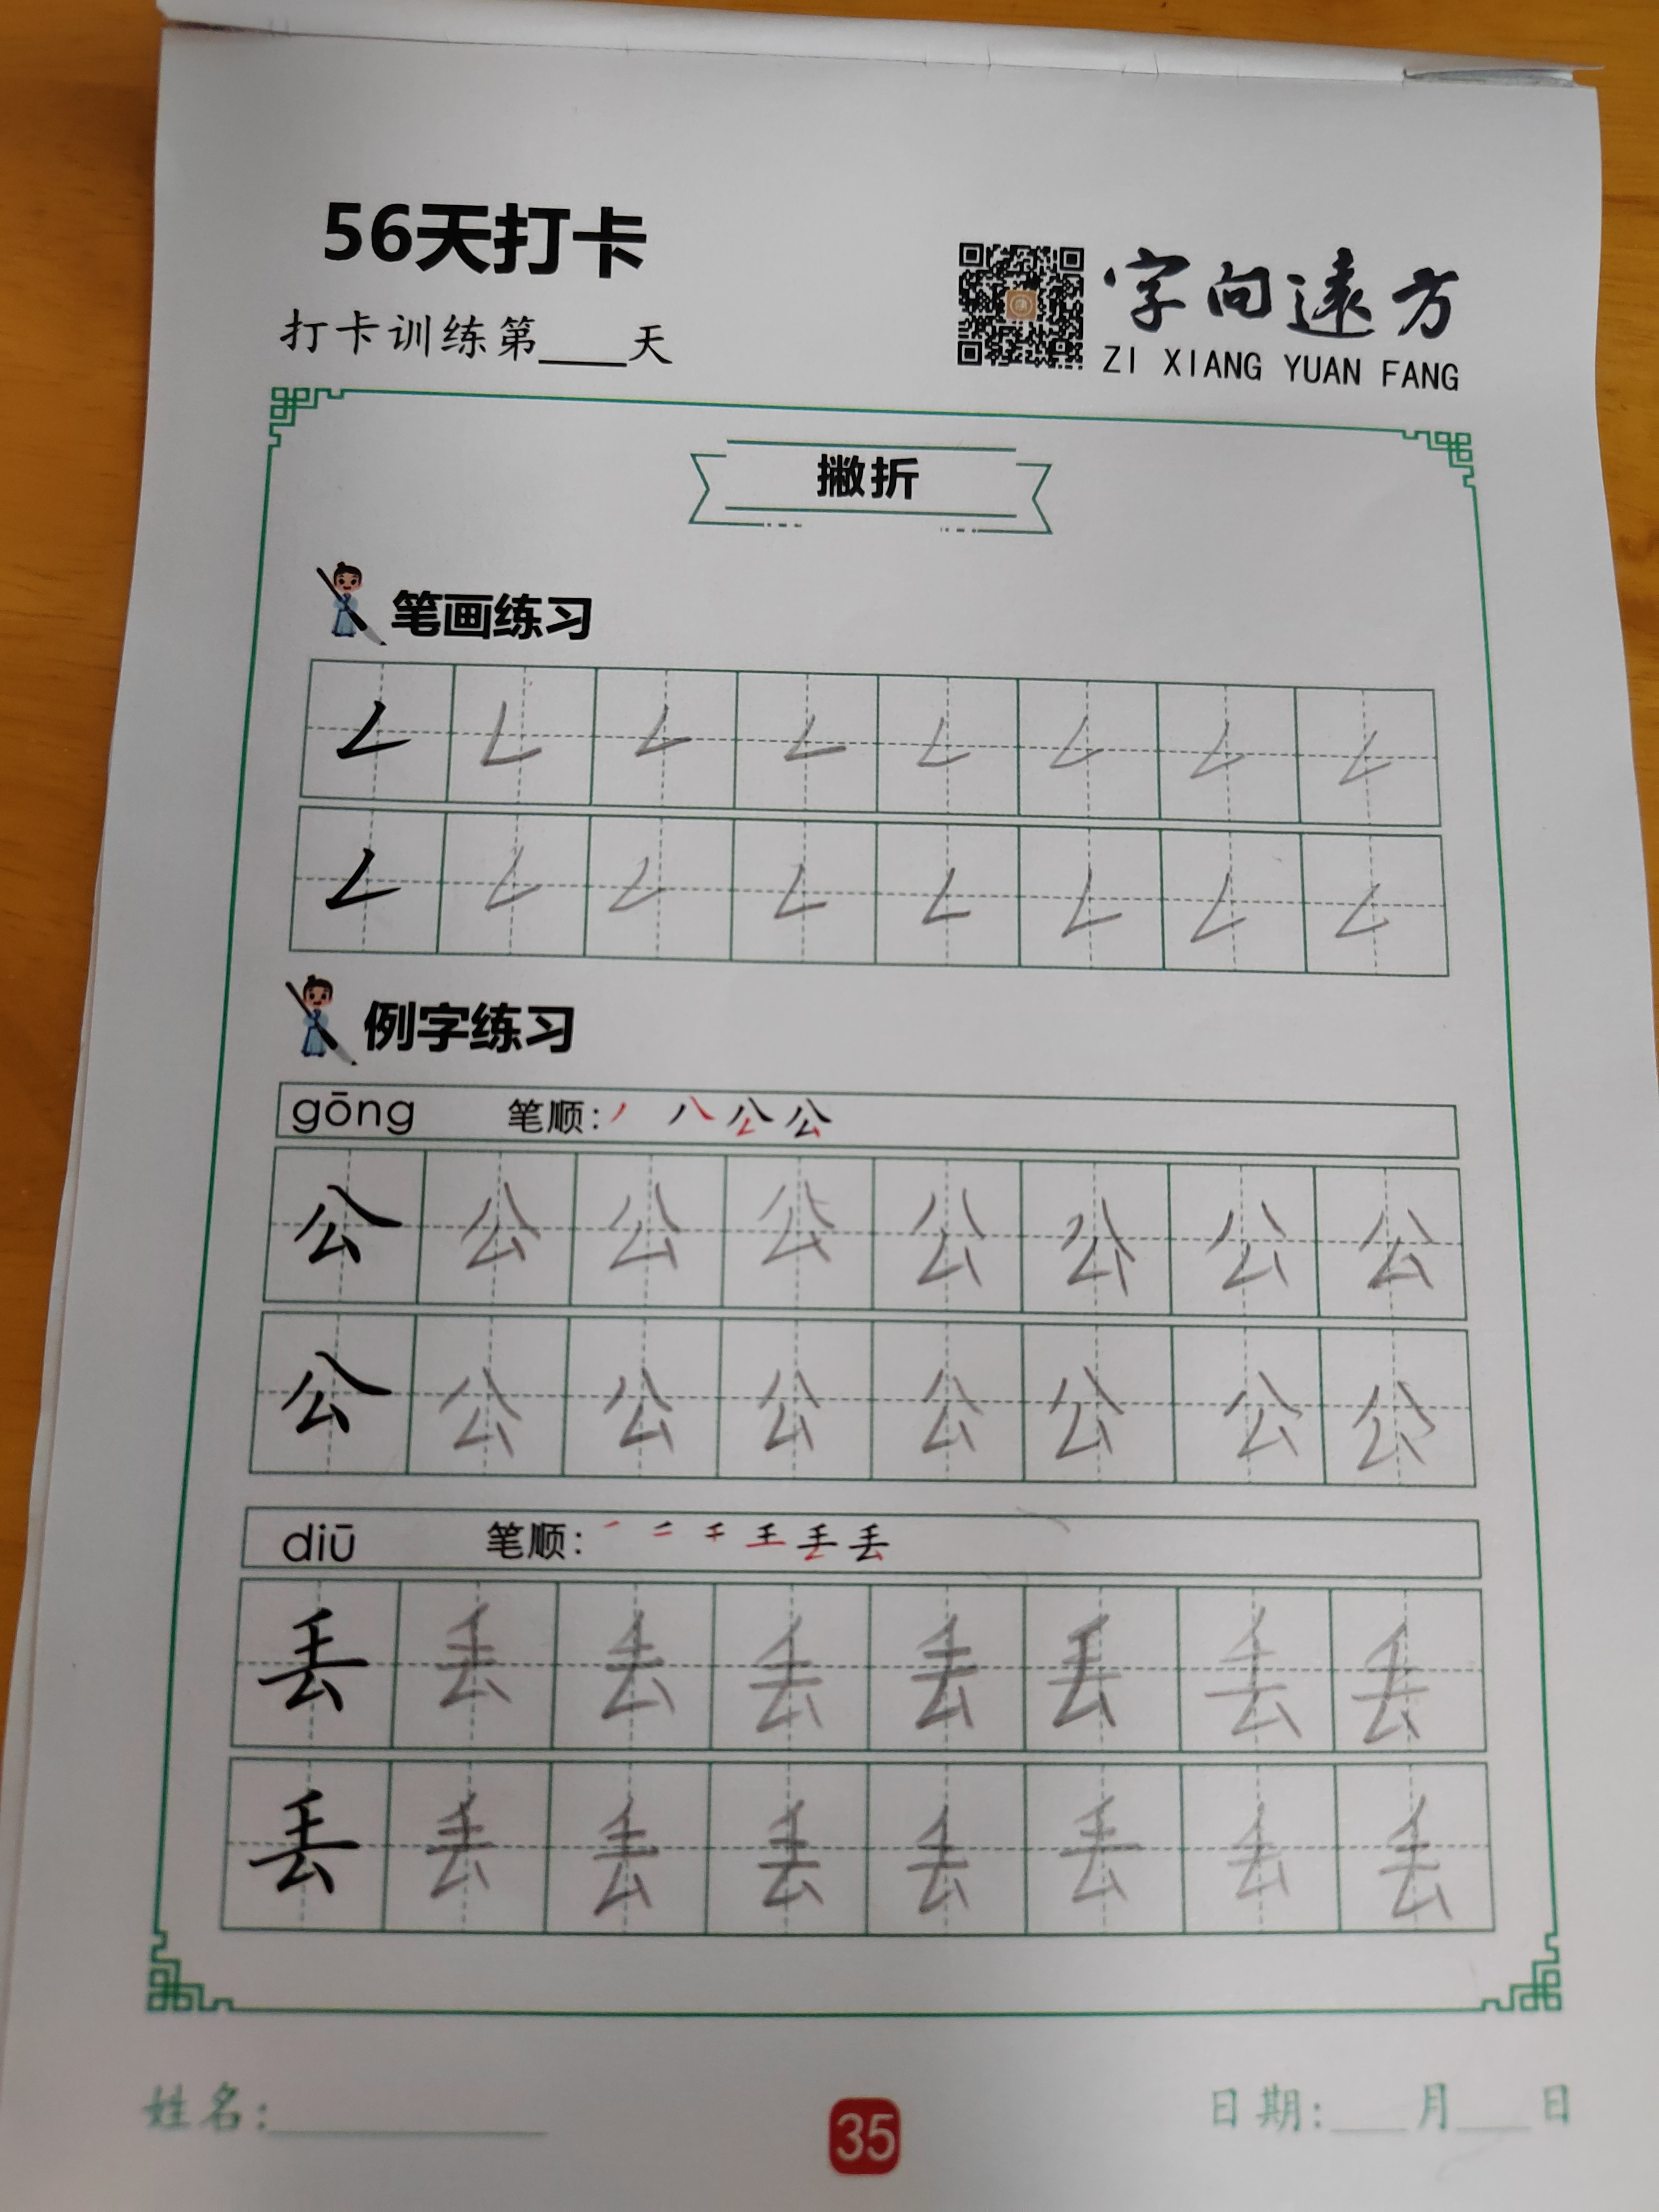 56天打卡
打卡训练第___天
字向遠方
ZI XIANG YUAN FANG
撇折
笔画练习
𠃋 𠃋 𠃋 𠃋 𠃋 𠃋 𠃋 𠃋
𠃋 𠃋 𠃋 𠃋 𠃋 𠃋 𠃋 𠃋
例字练习
gōng 笔顺:
公 公 公 公 公 公 公 公
公 公 公 公 公 公 公 公
diū 笔顺:
丢 丢 丢 丢 丢 丢 丢 丢
丢 丢 丢 丢 丢 丢 丢 丢
姓名:___ 35 日期:___月___日